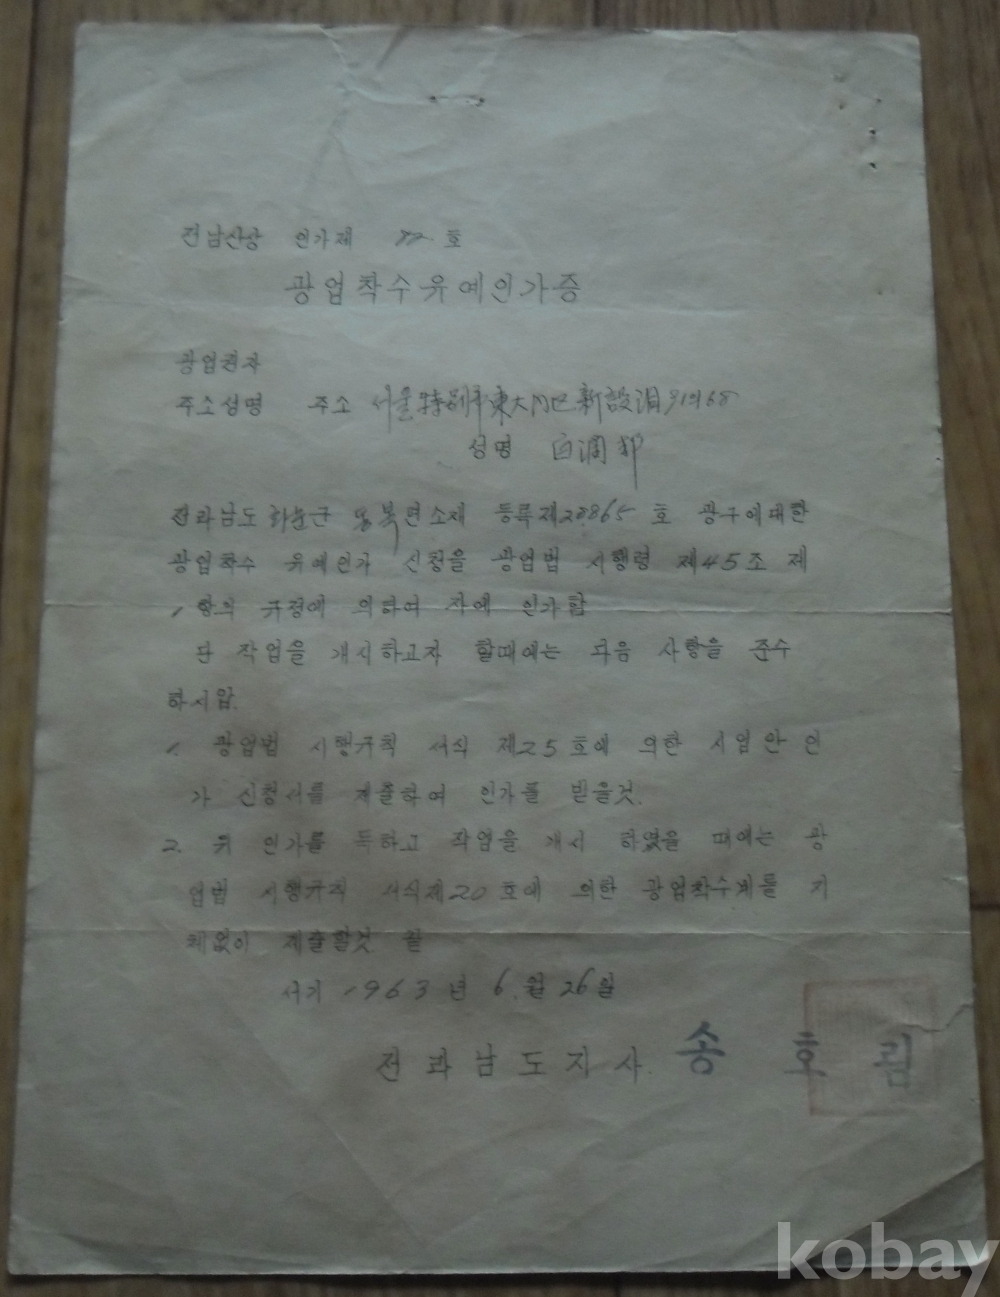 전남산상 인가제 호
광업착수유예인가증
광업권자
주소성명 주소 서울特別市東大門區新設洞91의68
성명 白潤
전라남도 화순군 동복면소재 등록제28865호 광구에대한
광업착수 유예인가 신청을 광업법 시행령 제45조 제
1항의 규정에 의하여 자에 인가함
단 작업을 개시하고자 할때에는 다음 사항을 준수
하시압.
1. 광업법 시행규칙 서식 제25호에 의한 시업안 인
가 신청서를 제출하여 인가를 받을것.
2. 위 인가를 득하고 작업을 개시 하였을 때에는 광
업법 시행규칙 서식제20호에 의한 광업착수계를 지
체없이 제출할것
서기 1963년 6월 26일
전라남도지사. 송호림
kobay